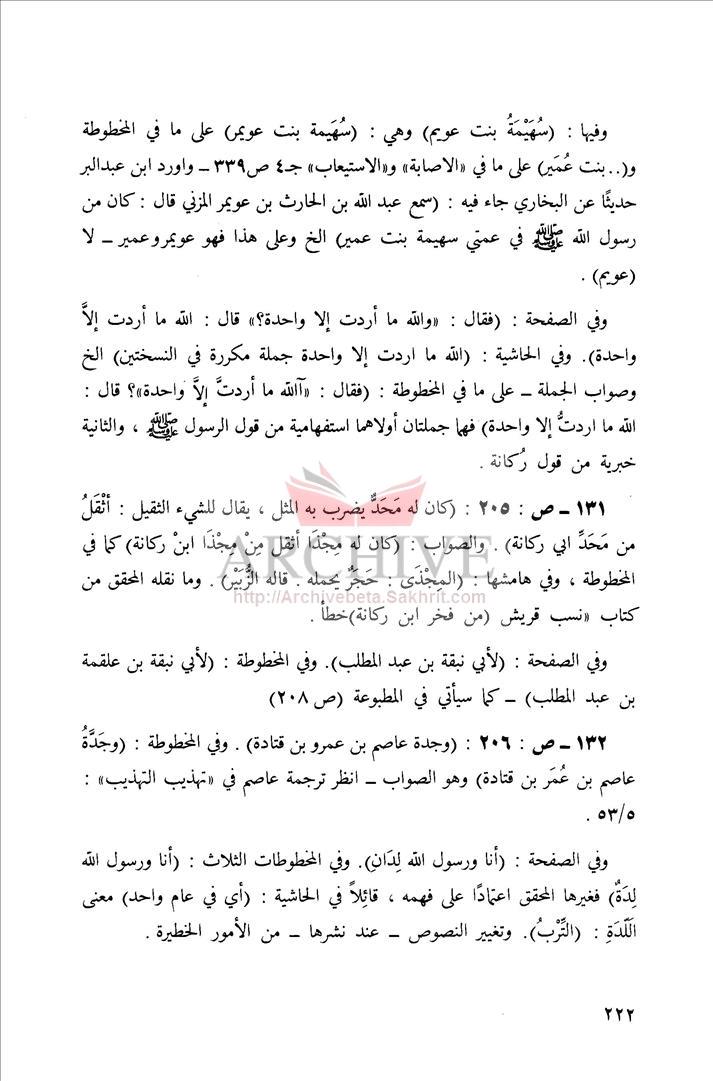 وفيها : (سُهَيْمَةُ بنت عويم) وهي : (سُهَيمة بنت عويمر) على ما في المخطوطة
و(..بنت عُمَير) على ما في «الاصابة» و«الاستيعاب» جـ٤ ص٣٣٩ ــ واورد ابن عبدالبر
حديثًا عن البخاري جاء فيه : (سمع عبد الله بن الحارث بن عويمر المزني قال : كان من
رسول الله ﷺ في عمتي سهيمة بنت عمير) الخ وعلى هذا فهو عويمر وعمير ــ لا
(عويم) .
وفي الصفحة : (فقال : «والله ما أردت إلا واحدة؟» قال : الله ما أردت إلاَّ
واحدة). وفي الحاشية : (الله ما اردت إلا واحدة جملة مكررة في النسختين) الخ
وصواب الجملة ــ على ما في المخطوطة : (فقال : «آالله ما أردتَّ إلاَّ واحدة»؟ قال :
الله ما اردتُّ إلا واحدة) فهما جملتان أولاهما استفهامية من قول الرسول ﷺ ، والثانية
خبرية من قول رُكانة .
١٣١ ــ ص : ٢٠٥ : (كان له مَحَدٌّ يضرب به المثل ، يقال للشيء الثقيل : أثْقَلُ
من مَحَدِّ ابي ركانة) . والصواب : (كان له مِجْذَا أثقل مِنْ مِجْذَا ابنْ ركانة) كما في
المخطوطة ، وفي هامشها : (المِجْذَى : حَجَرٌ يحمله . قاله الزُّبَيْر) . وما نقله المحقق من
كتاب «نسب قريش (من فخر ابن ركانة)خطأ .
ARCHIVE
http://Archivebeta.Sakhrit.com
وفي الصفحة : (لأبي نبقة بن عبد المطلب). وفي المخطوطة : (لأبي نبقة بن علقمة
بن عبد المطلب) ــ كما سيأتي في المطبوعة (ص ٢٠٨)
١٣٢ ــ ص : ٢٠٦ : (وجدة عاصم بن عمرو بن قتادة) . وفي المخطوطة : (وجَدَّةُ
عاصم بن عُمَر بن قتادة) وهو الصواب ــ انظر ترجمة عاصم في «تهذيب التهذيب» :
٥٣/٥ .
وفي الصفحة : (أنا ورسول الله لِدَانِ). وفي المخطوطات الثلاث : (أنا ورسول الله
لِدَةٌ) فغيرها المحقق اعتمادًا على فهمه ، قائِلاً في الحاشية : (أي في عام واحد) معنى
اَللّدَةِ : (التِّرْبُ). وتغيير النصوص ــ عند نشرها ــ من الأمور الخطيرة .
٢٢٢